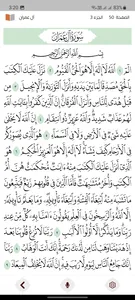 3:20
آل عمران
الصفحة 50 الجزء 3
سُورَةُ آلِ عِمْرَانَ
بِسْمِ ٱللَّهِ ٱلرَّحْمَٰنِ ٱلرَّحِيمِ
الٓمٓ ١ ٱللَّهُ لَآ إِلَٰهَ إِلَّا هُوَ ٱلْحَىُّ ٱلْقَيُّومُ ٢ نَزَّلَ عَلَيْكَ ٱلْكِتَٰبَ
بِٱلْحَقِّ مُصَدِّقًا لِّمَا بَيْنَ يَدَيْهِ وَأَنزَلَ ٱلتَّوْرَىٰةَ وَٱلْإِنجِيلَ ٣ مِن
قَبْلُ هُدًى لِّلنَّاسِ وَأَنزَلَ ٱلْفُرْقَانَ إِنَّ ٱلَّذِينَ كَفَرُوا۟ بِـَٔايَٰتِ ٱللَّهِ لَهُمْ
عَذَابٌ شَدِيدٌ وَٱللَّهُ عَزِيزٌ ذُو ٱنتِقَامٍ ٤ إِنَّ ٱللَّهَ لَا يَخْفَىٰ عَلَيْهِ
شَىْءٌ فِى ٱلْأَرْضِ وَلَا فِى ٱلسَّمَآءِ ٥ هُوَ ٱلَّذِى يُصَوِّرُكُمْ فِى
ٱلْأَرْحَامِ كَيْفَ يَشَآءُ لَآ إِلَٰهَ إِلَّا هُوَ ٱلْعَزِيزُ ٱلْحَكِيمُ ٦ هُوَ ٱلَّذِىٓ
أَنزَلَ عَلَيْكَ ٱلْكِتَٰبَ مِنْهُ ءَايَٰتٌ مُّحْكَمَٰتٌ هُنَّ أُمُّ ٱلْكِتَٰبِ وَأُخَرُ
مُتَشَٰبِهَٰتٌ فَأَمَّا ٱلَّذِينَ فِى قُلُوبِهِمْ زَيْغٌ فَيَتَّبِعُونَ مَا تَشَٰبَهَ مِنْهُ
ٱبْتِغَآءَ ٱلْفِتْنَةِ وَٱبْتِغَآءَ تَأْوِيلِهِۦ وَمَا يَعْلَمُ تَأْوِيلَهُۥٓ إِلَّا ٱللَّهُ
وَٱلرَّٰسِخُونَ فِى ٱلْعِلْمِ يَقُولُونَ ءَامَنَّا بِهِۦ كُلٌّ مِّنْ عِندِ رَبِّنَا وَمَا يَذَّكَّرُ
إِلَّآ أُو۟لُوا۟ ٱلْأَلْبَٰبِ ٧ رَبَّنَا لَا تُزِغْ قُلُوبَنَا بَعْدَ إِذْ هَدَيْتَنَا
وَهَبْ لَنَا مِن لَّدُنكَ رَحْمَةً إِنَّكَ أَنتَ ٱلْوَهَّابُ ٨ رَبَّنَآ
إِنَّكَ جَامِعُ ٱلنَّاسِ لِيَوْمٍ لَّا رَيْبَ فِيهِ إِنَّ ٱللَّهَ لَا يُخْلِفُ ٱلْمِيعَادَ ٩